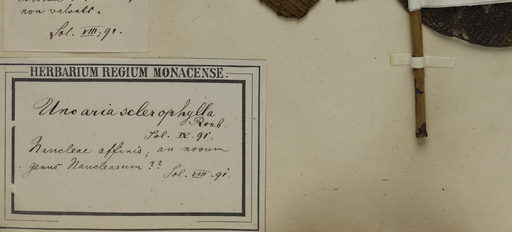 non valvats.
Sol. VIII. 91.
HERBARIUM REGIUM MONACENSE.
Uncaria sclerophylla
Roxb.
Sol. IX. 91.
Naucleae affinis, an novum
genus Nauclearum ??
Sol. VIII. 91.